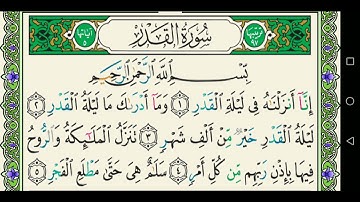 ترتيبها ٩٧ سُورَةُ الْقَدْرِ آياتها ٥
بِسْمِ اللَّهِ الرَّحْمَٰنِ الرَّحِيمِ
إِنَّا أَنزَلْنَٰهُ فِى لَيْلَةِ الْقَدْرِ ١ وَمَا أَدْرَىٰكَ مَا لَيْلَةُ الْقَدْرِ ٢
لَيْلَةُ الْقَدْرِ خَيْرٌ مِّنْ أَلْفِ شَهْرٍ ٣ تَنَزَّلُ الْمَلَٰٓئِكَةُ وَالرُّوحُ
فِيهَا بِإِذْنِ رَبِّهِم مِّن كُلِّ أَمْرٍ ٤ سَلَٰمٌ هِىَ حَتَّىٰ مَطْلَعِ الْفَجْرِ ٥